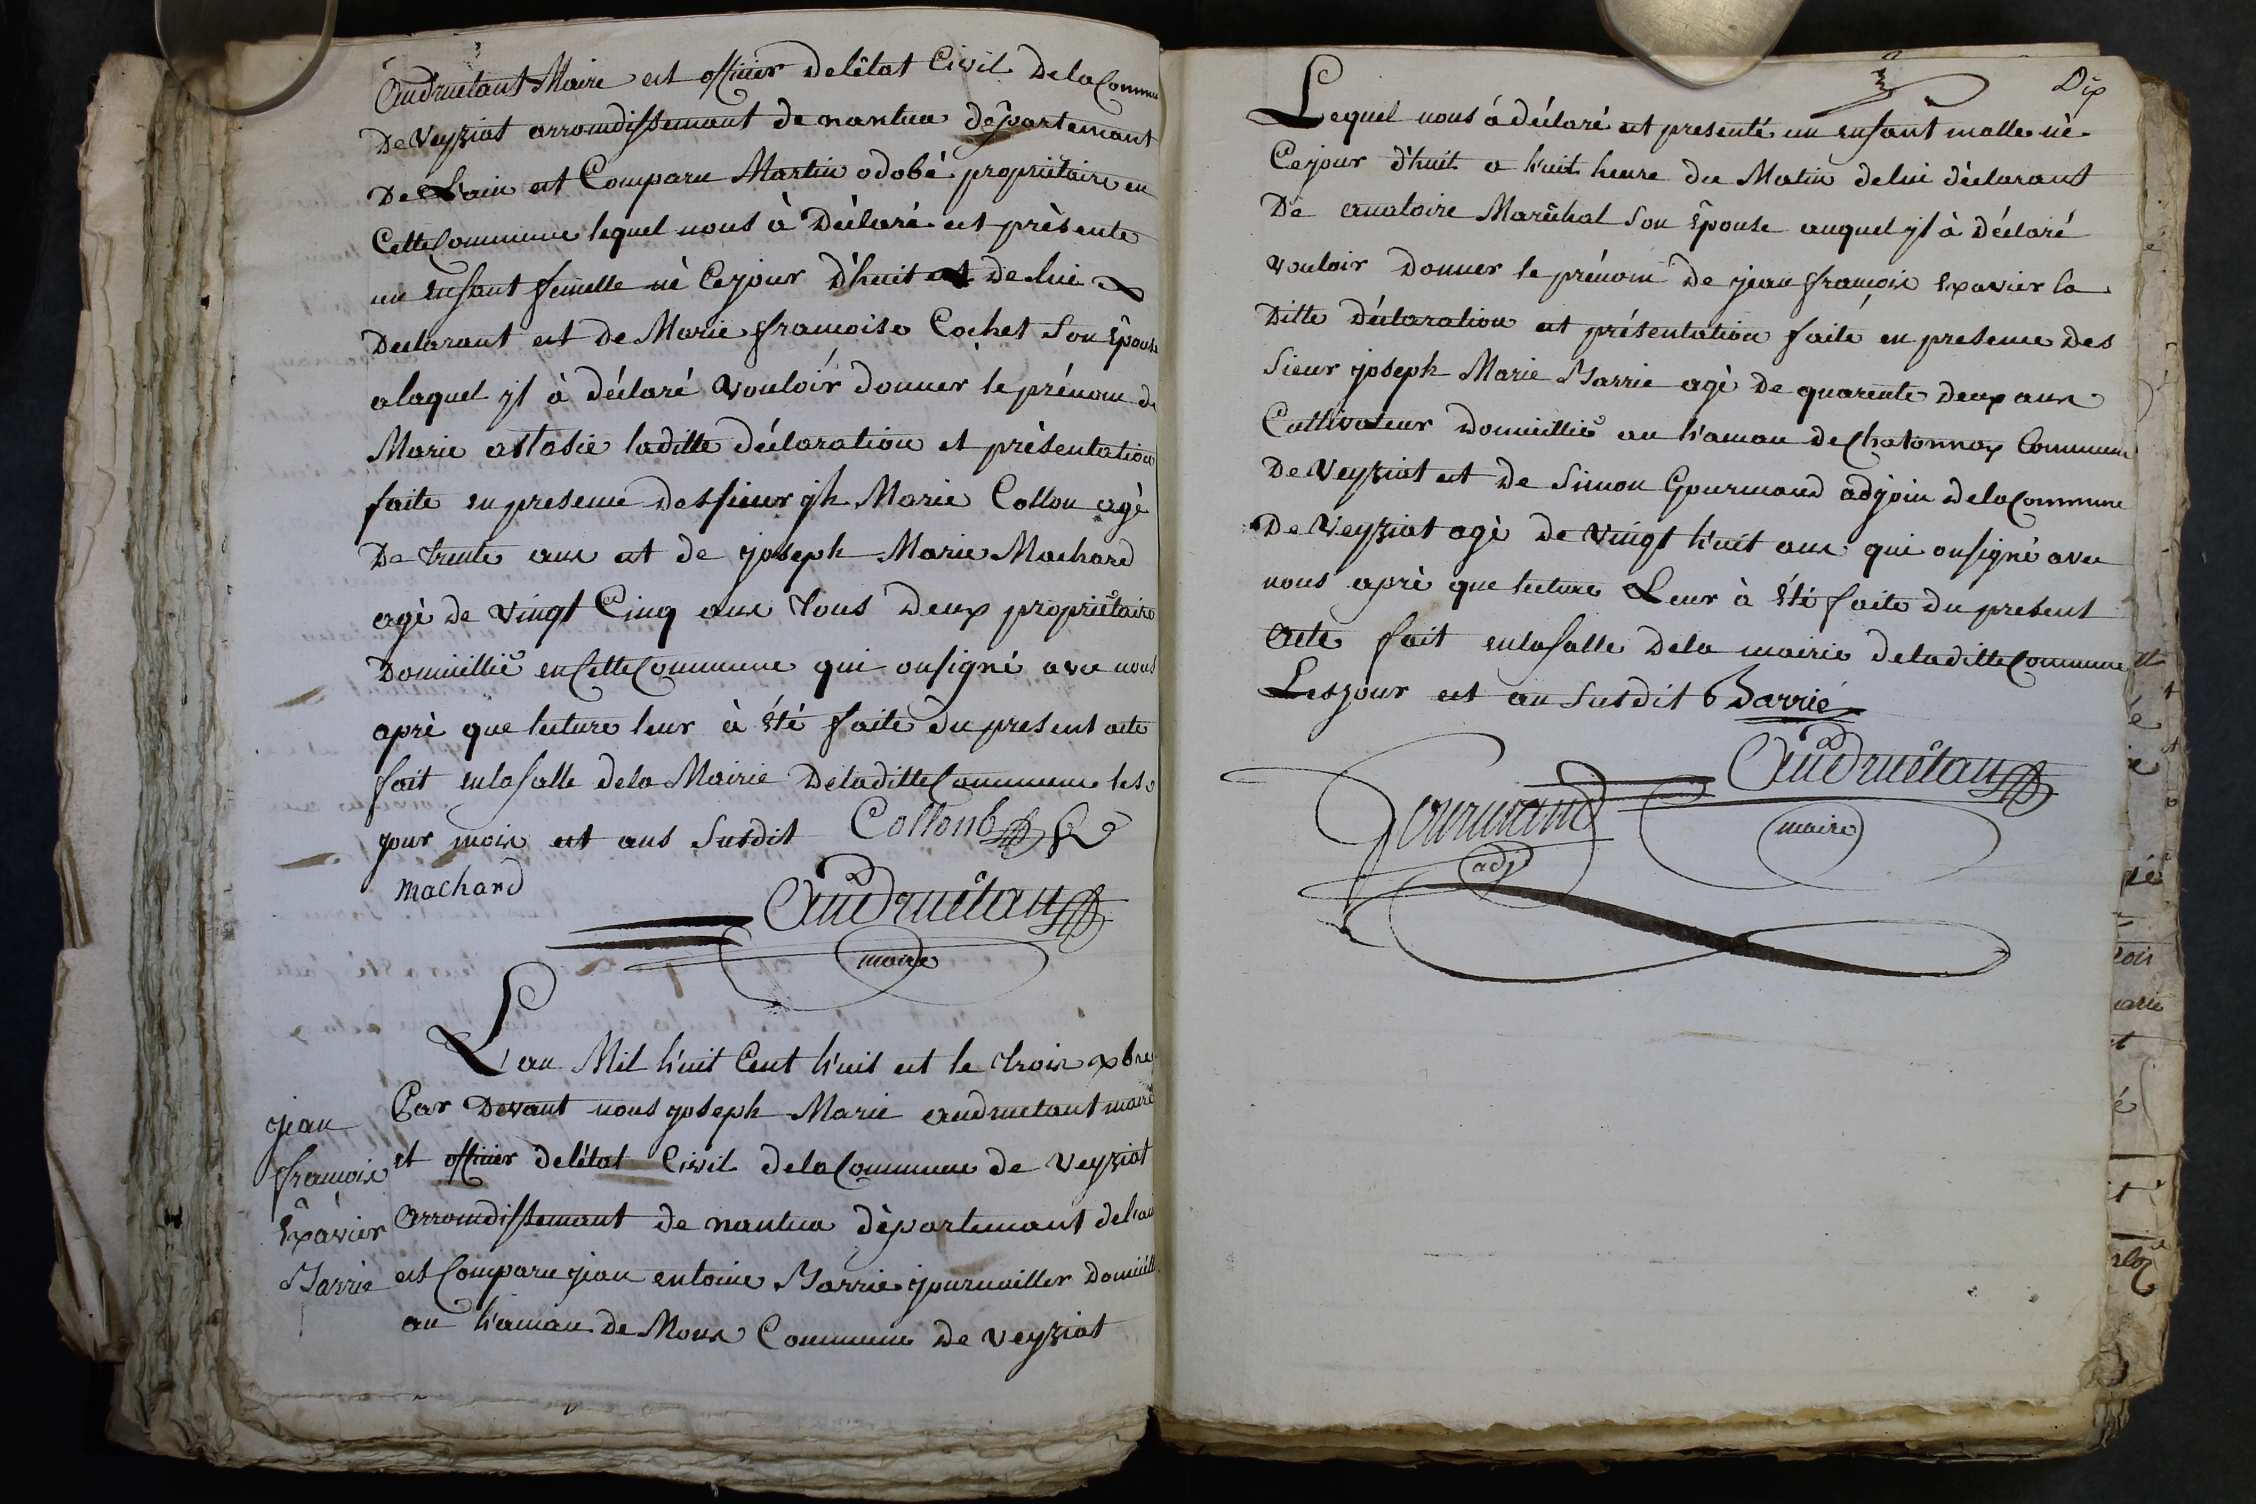 Audruetant Maire et officier deletat Civil Dela Commu
De Veyziat arrondissemant de nantua departemant
De L'ain et Comparu Martin odobé propriètaire en
Cette Commune lequel nous à Déclaré et prèsente
un Enfant femelle nè Cejour D'huit et De lui
Declarant et de Marie francoise Cochet Son Epouse
alaquel yl à déclaré Vouloir donner le prénom de
Marie astasie laditte déclaration et prèsentation
faite en presence des sieur jh Marie Collon agè
De trente ans et de joseph Marie Machard
agè de Vingt Cinq ans tous Deux propriétaire
Domicillié en Cette Commune qui onsigné avec nous
aprè que lecture leur à Été faite du present acte
fait enlasalle dela Mairie Deladitte Commune les
jour mois et ans Susdit Collonb
Machard
Audruétan
maire
L'an Mil h'uit Cent h'uit et le trois xbre
Par Devant nous joseph Marie audruetant maire
et officier deletat Civil dela Commune de Veyziat
arrondissemant de nantua dèpartemant del'ain
et Comparu jean entoine Barrie journailler Domicill
au h'amau de Mons Commune de veyziat
jean
francois
Exavier
Barrie
Dix
Lequel nous à déclaré et presenté un enfant malle nè
Cejour d'huit a huit heure du Matin delui déclarant
De anatoire Maréchal Son Épouse auquel yl à Déclaré
Vouloir Donner le prénom De jean francois Exavier la
Ditte Déclaration et présentation faite en presence Des
Sieur joseph Marie Barrie agè De quarente deux ans
Cultivateur Domicillié au h'amau de Chatonnax Commune
De Veyziat et De Simon Gourmand adjoin dela Commune
De Veyziat agè de Vingt h'uit ans qui onsigné avec
nous aprè que lecture Leur à Été faite du present
acte fait enlasalle Dela mairie deladitte Commune
Les jour et an Susdit Barrié
Audruétan
maire
Gourmand
adj